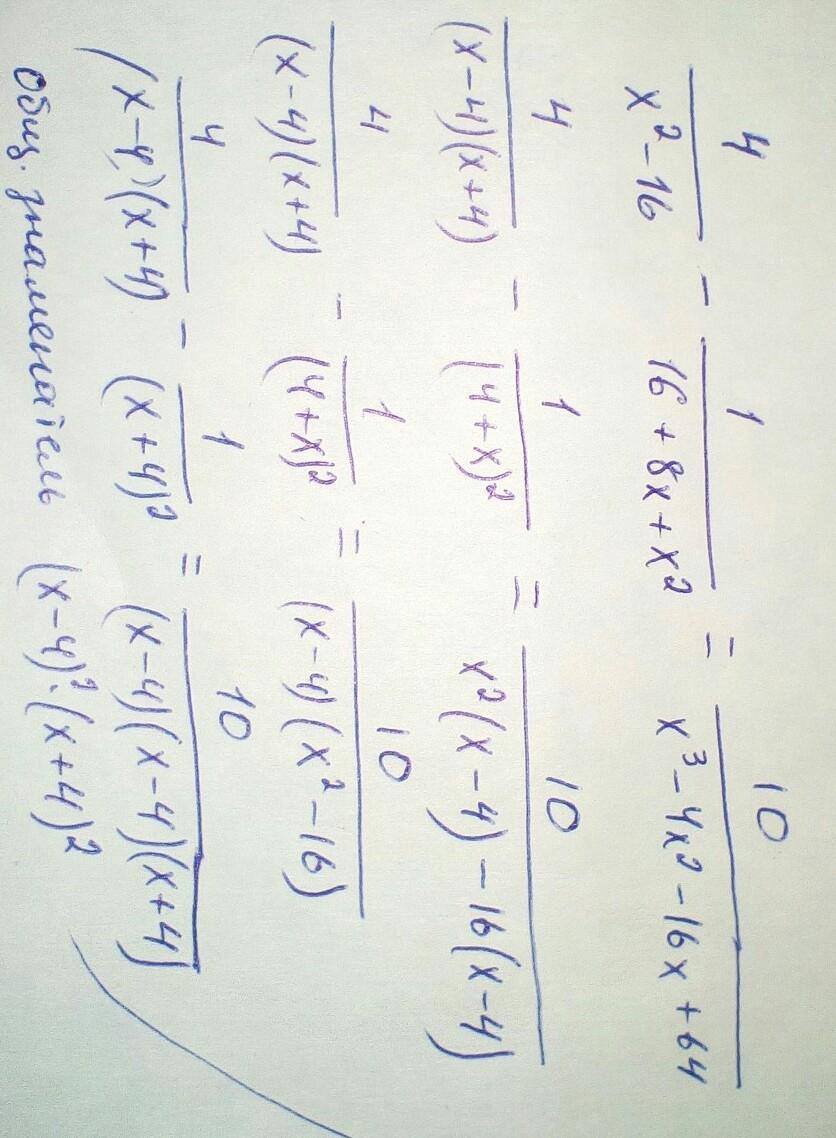 4/(x²-16) - 1/(16+8x+x²) = 10/(x³-4x²-16x+64)
4/((x-4)(x+4)) - 1/(4+x)² = 10/(x²(x-4)-16(x-4))
4/((x-4)(x+4)) - 1/(4+x)² = 10/((x-4)(x²-16))
4/((x-4)(x+4)) - 1/(x+4)² = 10/((x-4)(x-4)(x+4))
Общ. знаменатель (x-4)²·(x+4)²